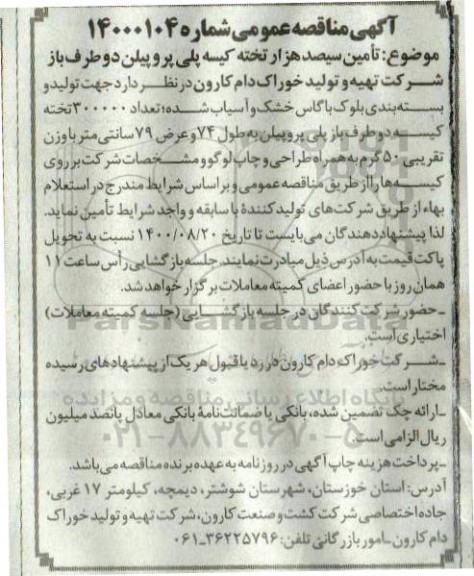 آگهی مناقصه عمومی شماره ۱۴۰۰۰۱۰۴
موضوع: تأمین سیصد هزار تخته کیسه پلی پروپیلن دو طرف باز
شرکت تهیه و تولید خوراک دام کارون در نظر دارد جهت تولید و
بسته‌بندی بلوک باگاس خشک و آسیاب شده؛ تعداد ۳۰۰۰۰۰ تخته
کیسه دو طرف باز پلی پروپیلن به طول ۷۴ و عرض ۷۹ سانتی متر با وزن
تقریبی ۵۰ گرم به همراه طراحی و چاپ لوگو و مشخصات شرکت بر روی
کیسه‌ها را از طریق مناقصه عمومی و بر اساس شرایط مندرج در استعلام
بهاء از طریق شرکت‌های تولیدکنندهٔ با سابقه و واجد شرایط تأمین نماید.
لذا پیشنهاددهندگان می‌بایست تا تاریخ ۱۴۰۰/۰۸/۲۰ نسبت به تحویل
پاکت قیمت به آدرس ذیل مبادرت نمایند. جلسه بازگشایی رأس ساعت ۱۱
همان روز با حضور اعضای کمیته معاملات برگزار خواهد شد.
ـ حضور شرکت کنندگان در جلسه بازگشایی (جلسه کمیته معاملات)
اختیاری است.
ParsNamadData
ـ شرکت خوراک دام کارون در رد یا قبول هر یک از پیشنهادهای رسیده
مختار است.
پایگاه اطلاع رسانی مناقصه و مزایده
ـ ارائه چک تضمین شده، بانکی یا ضمانت‌نامهٔ بانکی معادل پانصد میلیون
ریال الزامی است.
۰۲۱-۸۸۳۴۹۶۷۰-۵
ـ پرداخت هزینه چاپ آگهی در روزنامه به عهده برنده مناقصه می‌باشد.
آدرس: استان خوزستان، شهرستان شوشتر، دیمچه، کیلومتر ۱۷ غربی،
جاده اختصاصی شرکت کشت و صنعت کارون، شرکت تهیه و تولید خوراک
دام کارون ـ امور بازرگانی تلفن: ۳۶۲۲۵۷۹۶-۰۶۱